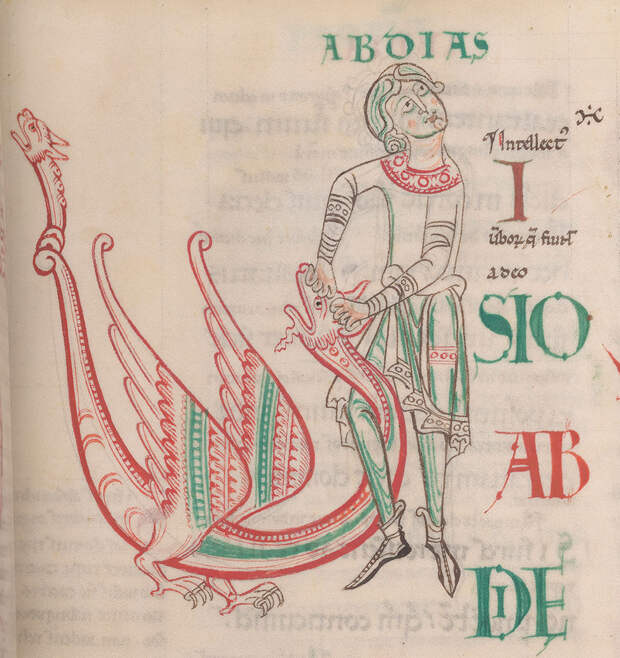 ABDIAS
Intellectꝰ
I
ūboꝝ q̄ fiunt
a deo
SIO
AB
DIE